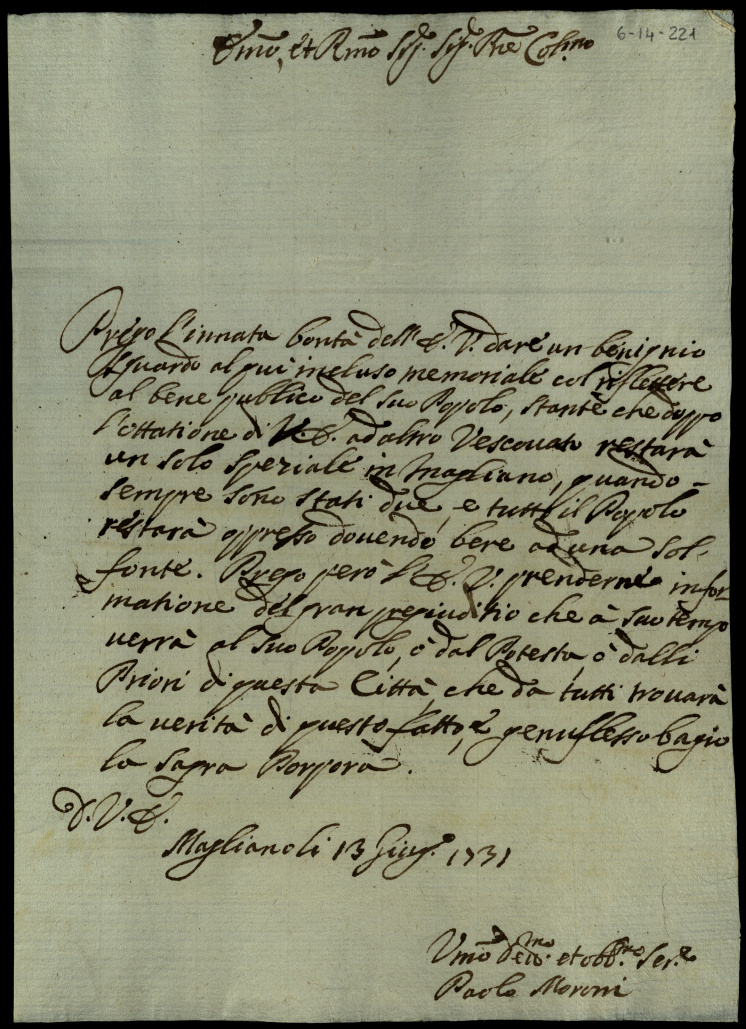 6-14-221
Emo, et Rmo Sig. Sig. Pne Colmo
Prego l'innata bontà dell'E.V. dare un benignio
sguardo al qui incluso memoriale col riflettere
al bene publico del suo Popolo, stante che doppo
l'ottatione di V.E. ad altro Vescovato restarà
un solo speziale in Magliano, quando-
sempre sono stati due, e tutto il Popolo
restarà oppresso dovendo bere ad una sol-
fonte. Prego però l'E.V. prenderne infor
matione del gran pregiuditio che à suo tempo
verrà al suo Popolo, ò dal Potestà, ò dalli
Priori di questa Città, che da tutti trovarà
la verità di questo fatto, e genuflesso bagio
la sagra Porpora.
D.V.E.
Magliano li 13 Giug. 1731
Umo Devmo. et obbmo Sere
Paolo Moroni